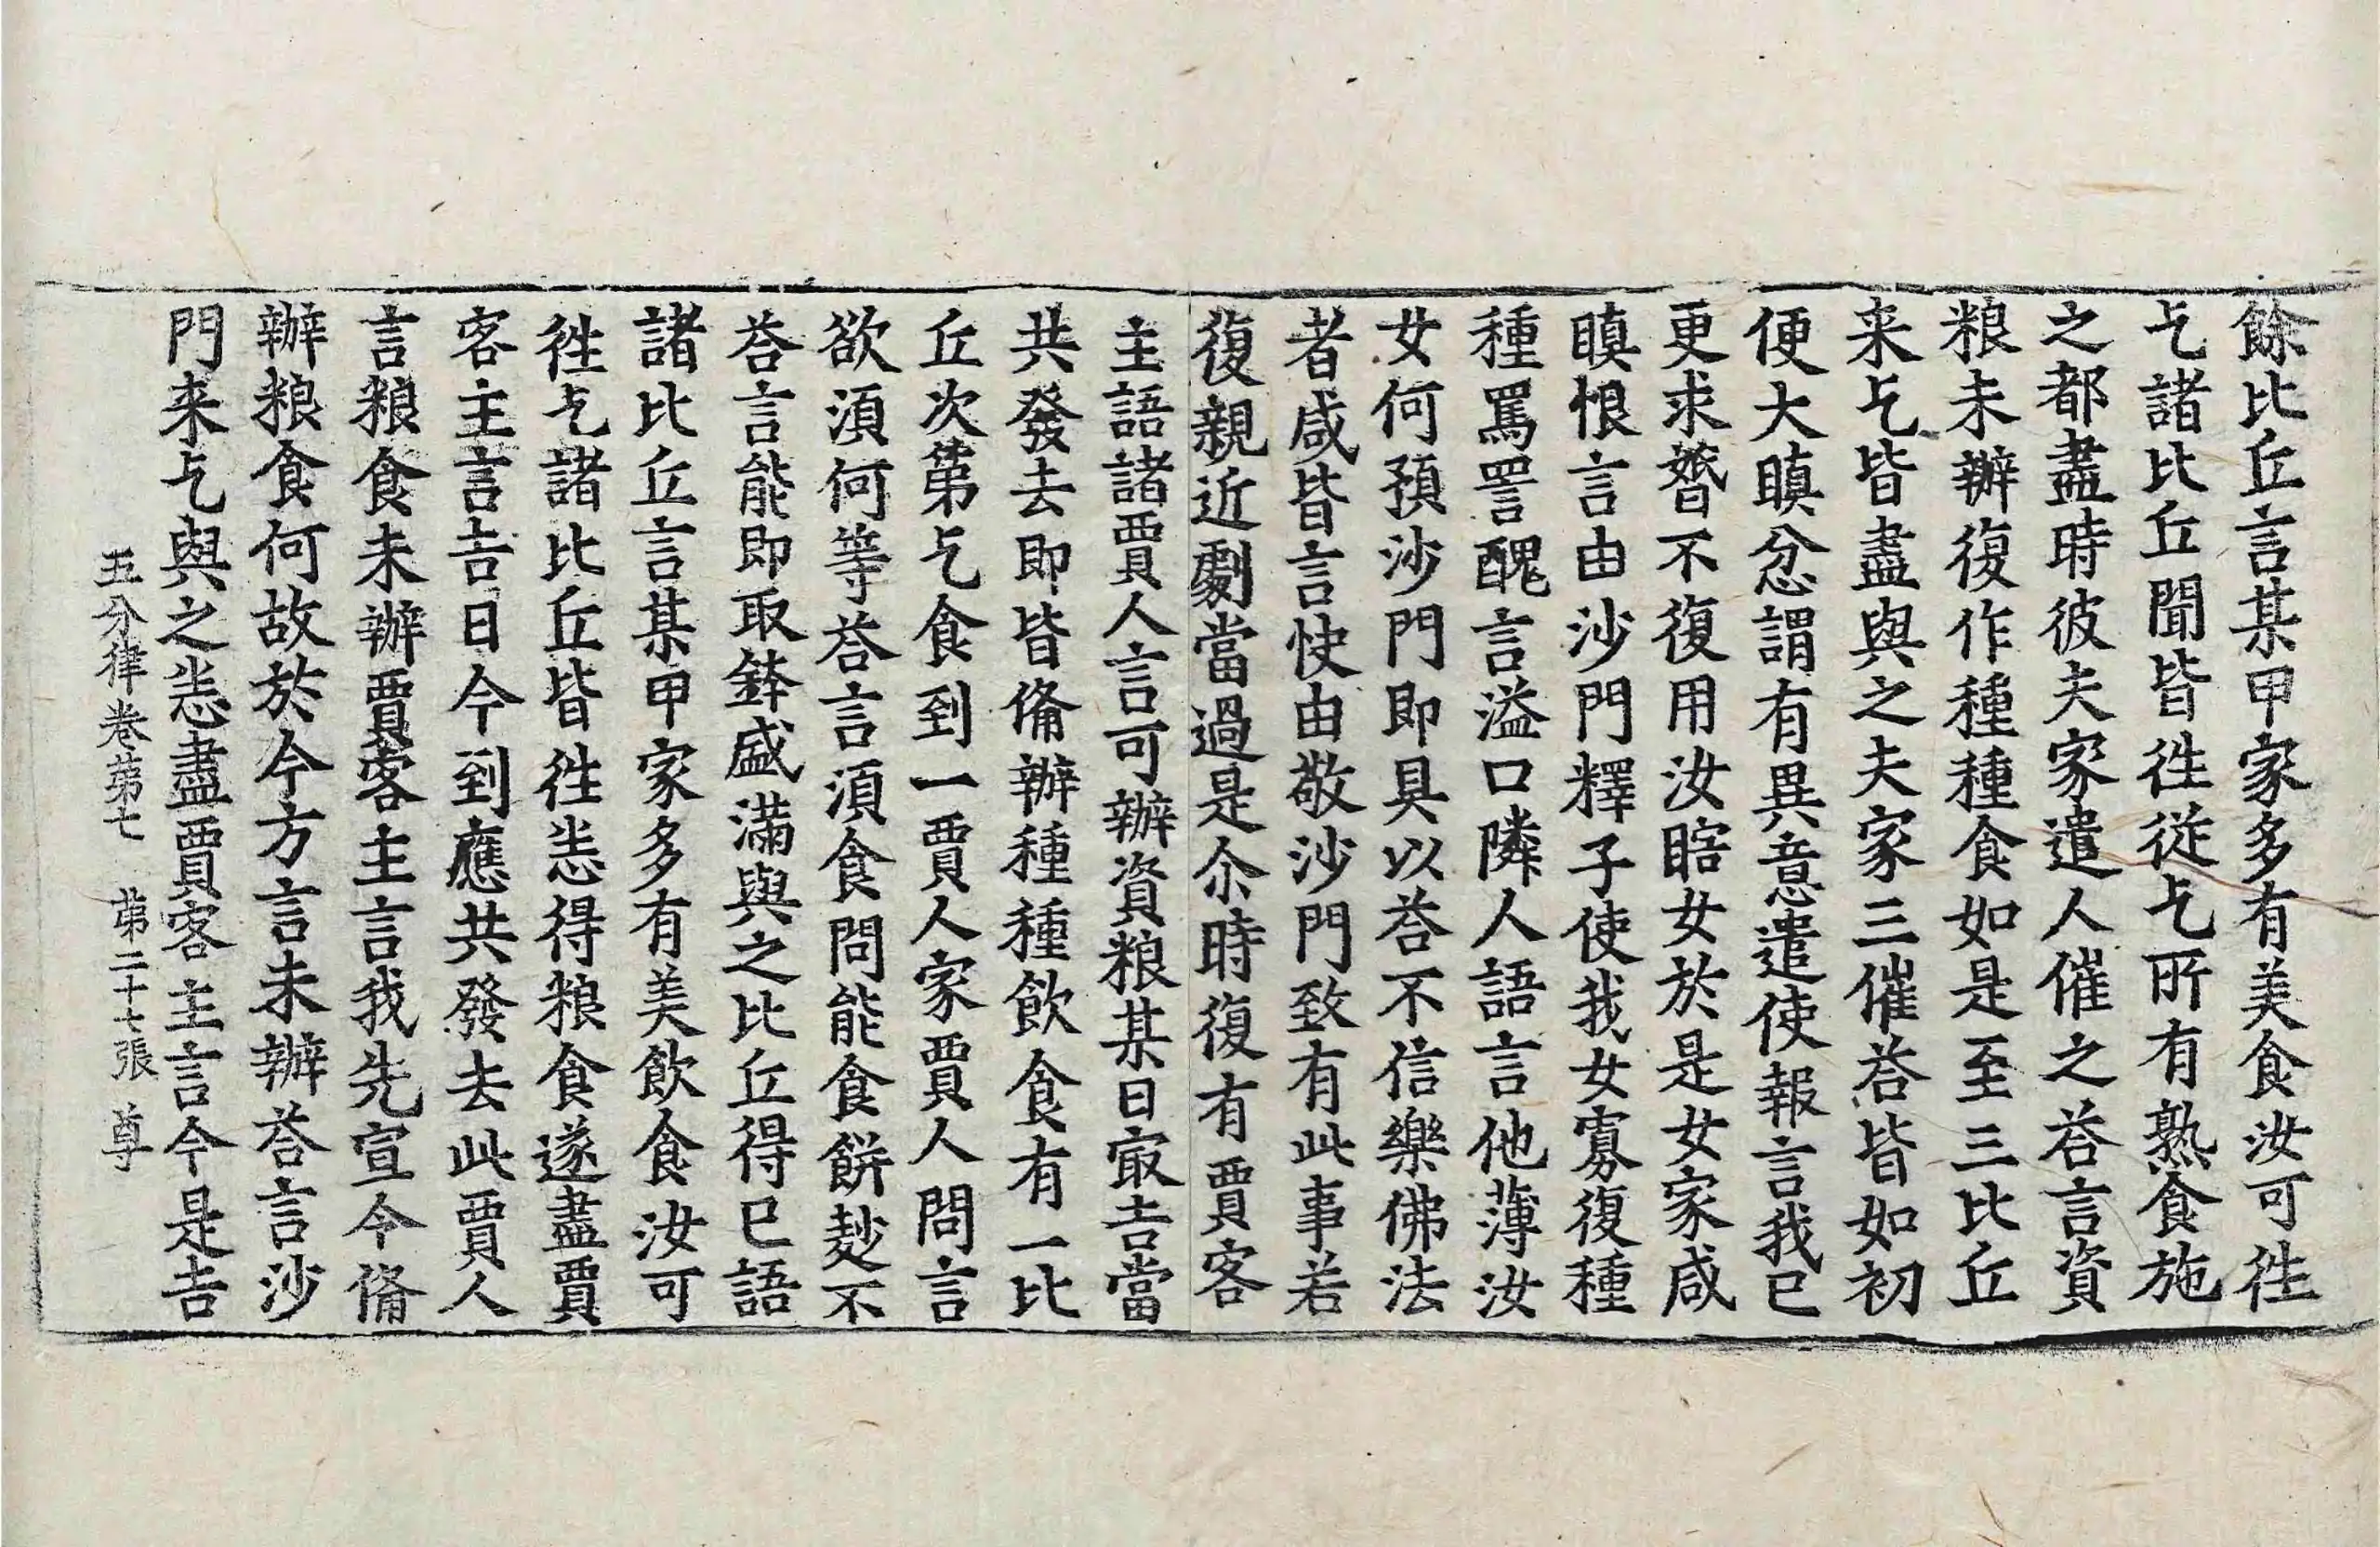 餘比丘言某甲家多有美食汝可徃
乞諸比丘聞皆徃從乞所有熟食施
之都盡時彼夫家遣人催之荅言資
粮未辦復作種種食如是至三比丘
来乞皆盡與之夫家三催荅皆如初
便大瞋忿謂有異意遣使報言我已
更求㛰不復用汝瞎女於是女家咸
瞋恨言由沙門釋子使我女寡復種
種罵詈醜言溢口隣人語言他薄汝
女何預沙門即具以荅不信樂佛法
者咸皆言快由敬沙門致有此事若
復親近劇當過是尒時復有賈客
主語諸賈人言可辦資粮某日㝡吉當
共發去即皆俻辦種種飲食有一比
丘次第乞食到一賈人家賈人問言
欲湏何等荅言湏食問能食餅麨不
荅言能即取鉢盛滿與之比丘得已語
諸比丘言某甲家多有美飲食汝可
徃乞諸比丘皆徃恙得粮食遂盡賈
客主言吉日今到應共發去此賈人
言粮食未辦賈客主言我先宣令俻
辦粮食何故於今方言未辦荅言沙
門来乞與之恙盡賈客主言今是吉
五分律卷第七 第二十七張 尊